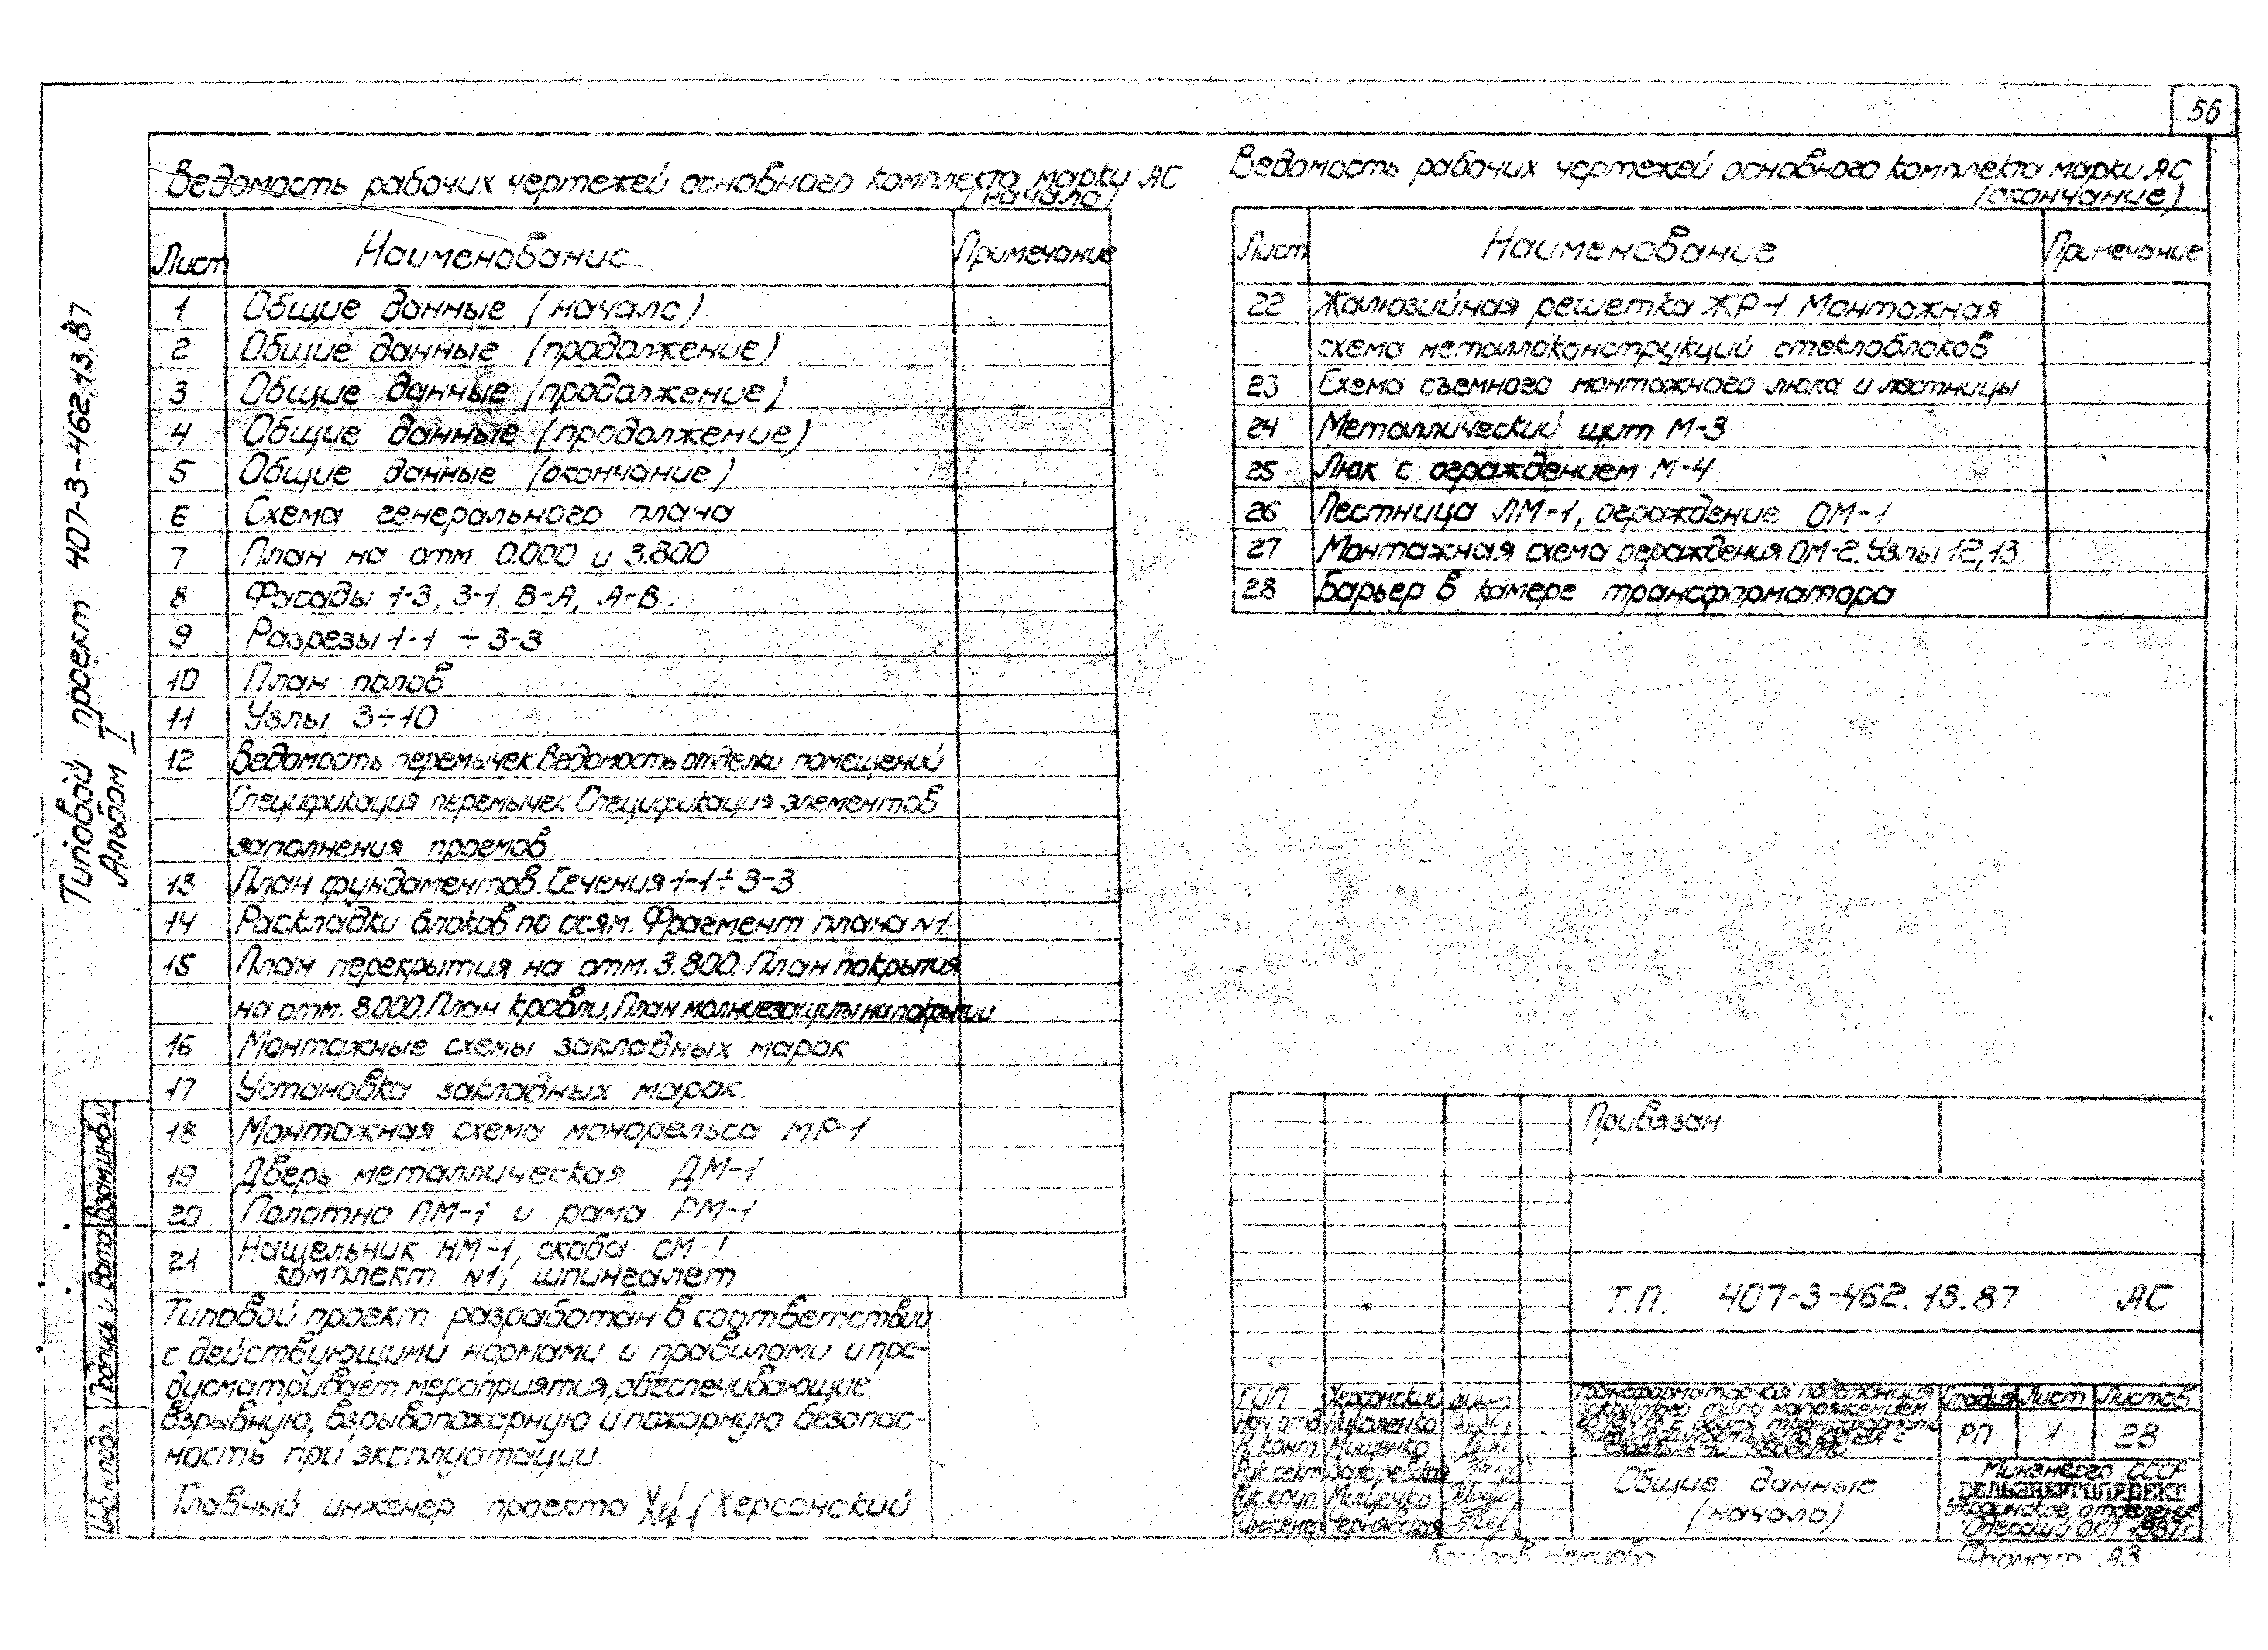 56
Типовой проект 407-3-462.13.87
Альбом I
Ведомость рабочих чертежей основного комплекта марки АС
(начало)
Лист Наименование Примечание
1 Общие данные (начало)
2 Общие данные (продолжение)
3 Общие данные (продолжение)
4 Общие данные (продолжение)
5 Общие данные (окончание)
6 Схема генерального плана
7 План на отм. 0.000 и 3.800
8 Фасады 1-3, 3-1, В-А, А-В.
9 Разрезы 1-1 ÷ 3-3
10 План полов
11 Узлы 3÷10
12 Ведомость перемычек. Ведомость отделки помещений
Спецификация перемычек. Спецификация элементов
заполнения проемов
13 План фундаментов. Сечения 1-1÷3-3
14 Раскладки блоков по осям. Фрагмент плана N1
15 План перекрытия на отм. 3.800. План покрытия
на отм. 8.000. План кровли. План молниезащиты на покрытии
16 Монтажные схемы закладных марок
17 Установка закладных марок.
18 Монтажная схема монорельса МР-1
19 Дверь металлическая ДМ-1
20 Полотно ПМ-1 и рама РМ-1
21 Нащельник НМ-1, скоба СМ-1
комплект N1, шпингалет
Типовой проект разработан в соответствии
с действующими нормами и правилами и пре-
дусматривает мероприятия, обеспечивающие
взрывную, взрывопожарную и пожарную безопас-
ность при эксплуатации.
Главный инженер проекта Херсонский
Ведомость рабочих чертежей основного комплекта марки АС
(окончание)
Лист Наименование Примечание
22 Жалюзийная решетка ЖР-1. Монтажная
схема металлоконструкций стеклоблоков
23 Схема съемного монтажного люка и лестницы
24 Металлический щит М-3
25 Люк с ограждением М-4
26 Лестница ЛМ-1, ограждение ОМ-1
27 Монтажная схема ограждения ОМ-2. Узлы 12,13
28 Барьер в камере трансформатора
Привязан
Т.П. 407-3-462.13.87 АС
ГИП Херсонский
Нач.отд.
Н.конт. Мищенко
Рук.сект.
Рук.груп. Мищенко
Инженер
Трансформаторная подстанция
закрытого типа напряжением
Стадия Лист Листов
РП 1 28
Общие данные
(начало)
Минэнерго СССР
СЕЛЬЭНЕРГОПРОЕКТ
Украинское отделение
Одесский ОКП 1987г.
Инв.N подл. Подпись и дата Взам.инв.N
Формат А3